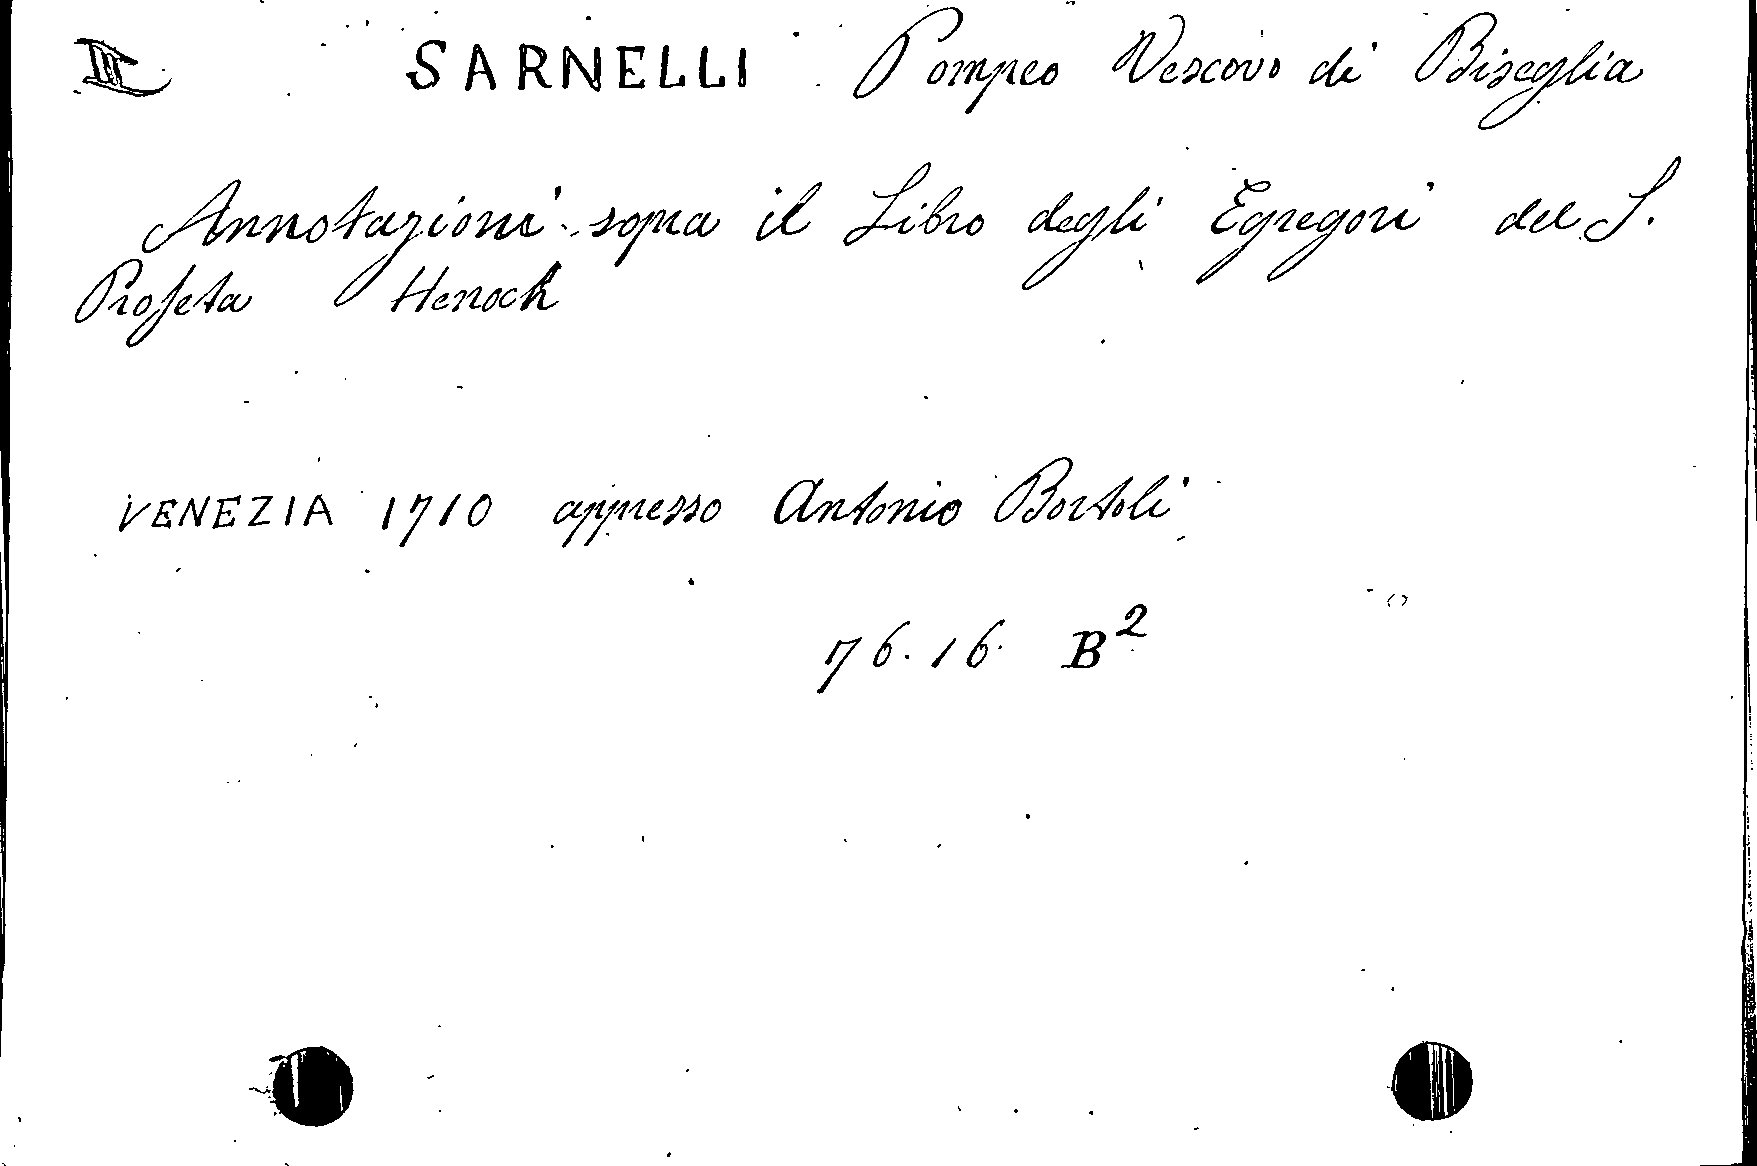 III SARNELLI Pompeo Vescovo di Biseglia
Annotazioni sopra il Libro degli Egregori del S.
Profeta Henoch
VENEZIA 1710 appresso Antonio Bortoli
76.16. B²